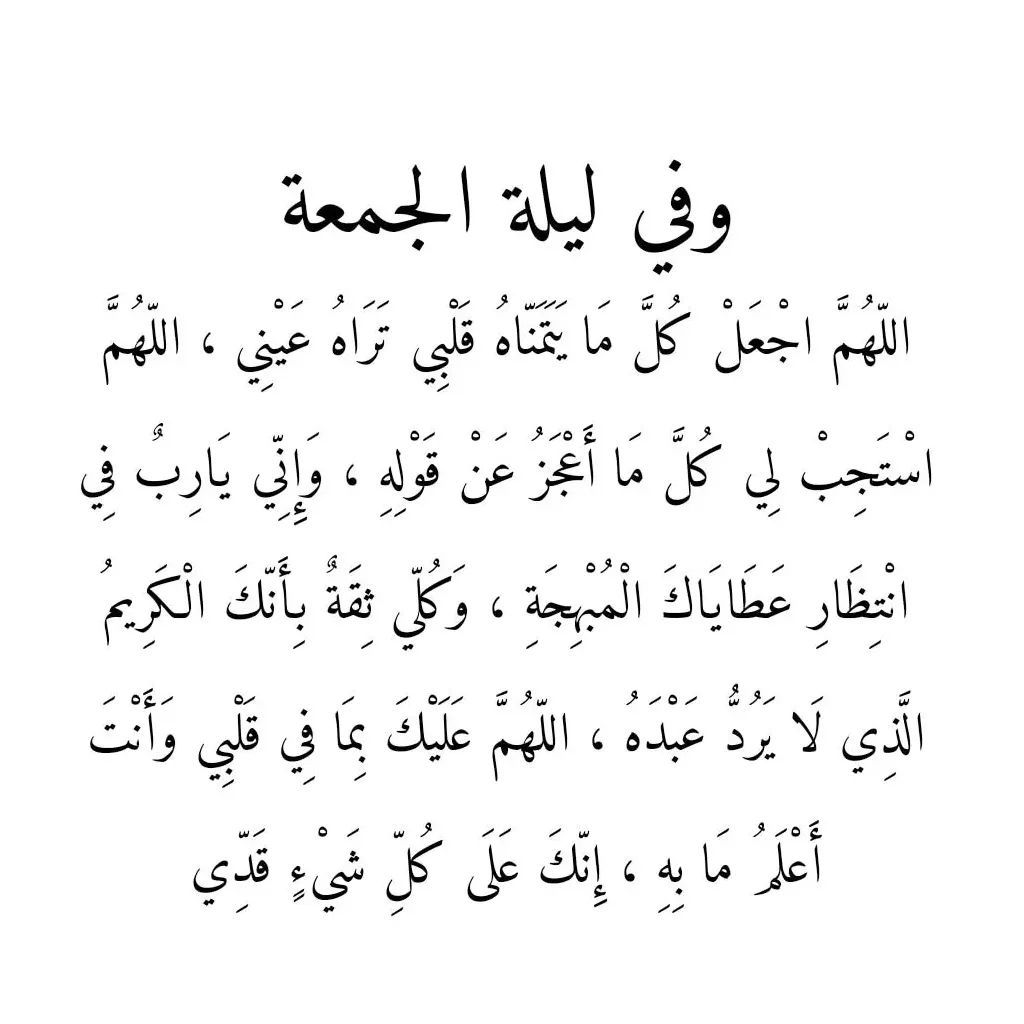 وفي ليلة الجمعة
اللّهُمَّ اجْعَلْ كُلَّ مَا يَتَمَنّاهُ قَلْبِي تَرَاهُ عَيْنِي ، اللّهُمَّ
اسْتَجِبْ لِي كُلَّ مَا أَعْجَزُ عَنْ قَوْلِهِ ، وَإِنِّي يَارِبٌ فِي
انْتِظَارِ عَطَايَاكَ الْمُبْهِجَةِ ، وَكُلّي ثِقَةٌ بِأَنّكَ الْكَرِيمُ
الَّذِي لَا يَرُدُّ عَبْدَهُ ، اللّهُمَّ عَلَيْكَ بِمَا فِي قَلْبِي وَأَنْتَ
أَعْلَمُ مَا بِهِ ، إِنّكَ عَلَى كُلِّ شَيْءٍ قَدِّي